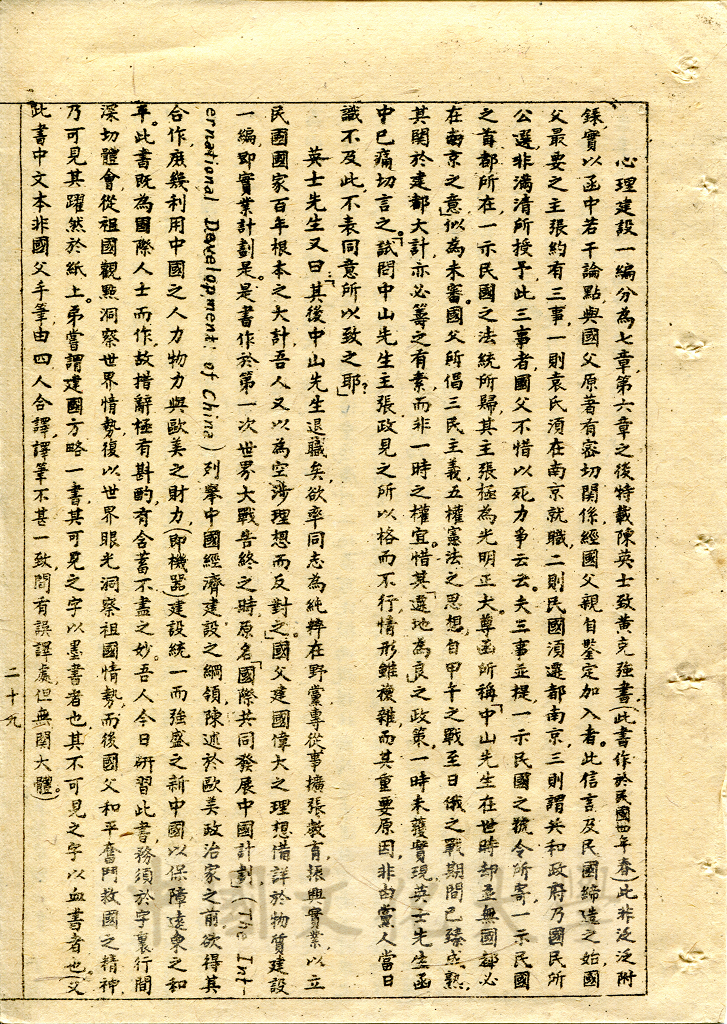 心理建設一編分為七章，第六章之後特載陳英士致黃克強書，（此書作於民國四年春）此非泛泛附
錄，實以函中若干論點與國父原著有密切關係，經國父親自鑒定加入者。此信言及民國締造之始，國
父最要之主張約有三事，一則袁氏須在南京就職，二則民國須遷都南京，三則謂共和政府乃國民所
公選，非滿清所授予，此三事者國父不惜以死力爭云云。夫三事並提，一示民國之號令所寄，一示民國
之首都所在，一示民國之法統所歸，其主張極為光明正大。尊函所稱「中山先生在世時却並無國都必
在南京之意」，似為未審。國父所倡三民主義五權憲法之思想，自甲午之戰至日俄之戰期間已臻成熟，
其關於建都大計，亦必籌之有素，而非一時之權宜。惜其「選地為良」之政策，一時未獲實現，英士先生函
中已痛切言之。「試問中山先生主張政見之所以格而不行，情形雖複雜而其重要原因，非由黨人當日
識不及此，不表同意所以致之耶？」
英士先生又曰：「其後中山先生退職矣，欲率同志為純粹在野黨，專從事擴張教育，振興實業，以立
民國國家百年根本之大計，吾人又以為空涉理想而反對之。」國父建國偉大之理想，備詳於物質建設
一編，即實業計劃是。是書作於第一次世界大戰告終之時，原名「國際共同發展中國計劃」（The Int-
ernational Development of China）列舉中國經濟建設之綱領，陳述於歐美政治家之前，欲得其
合作，庶幾利用中國之人力物力與歐美之財力（即機器）建設統一而強盛之新中國，以保障遠東之和
平。此書既為國際人士而作，故措辭極有斟酌，有含蓄不盡之妙。吾人今日研習此書，務須於字裏行間
深切體會，從祖國觀點洞察世界情勢，復以世界眼光洞察祖國情勢，而後國父和平奮鬥救國之精神，
乃可見其躍然於紙上。弟嘗謂建國方略一書，其可見之字以墨書者也，其不可見之字以血書者也。（又
此書中文本非國父手筆，由四人合譯，譯筆不甚一致，間有誤譯處，但無關大體。）
二十九
中國文化大學